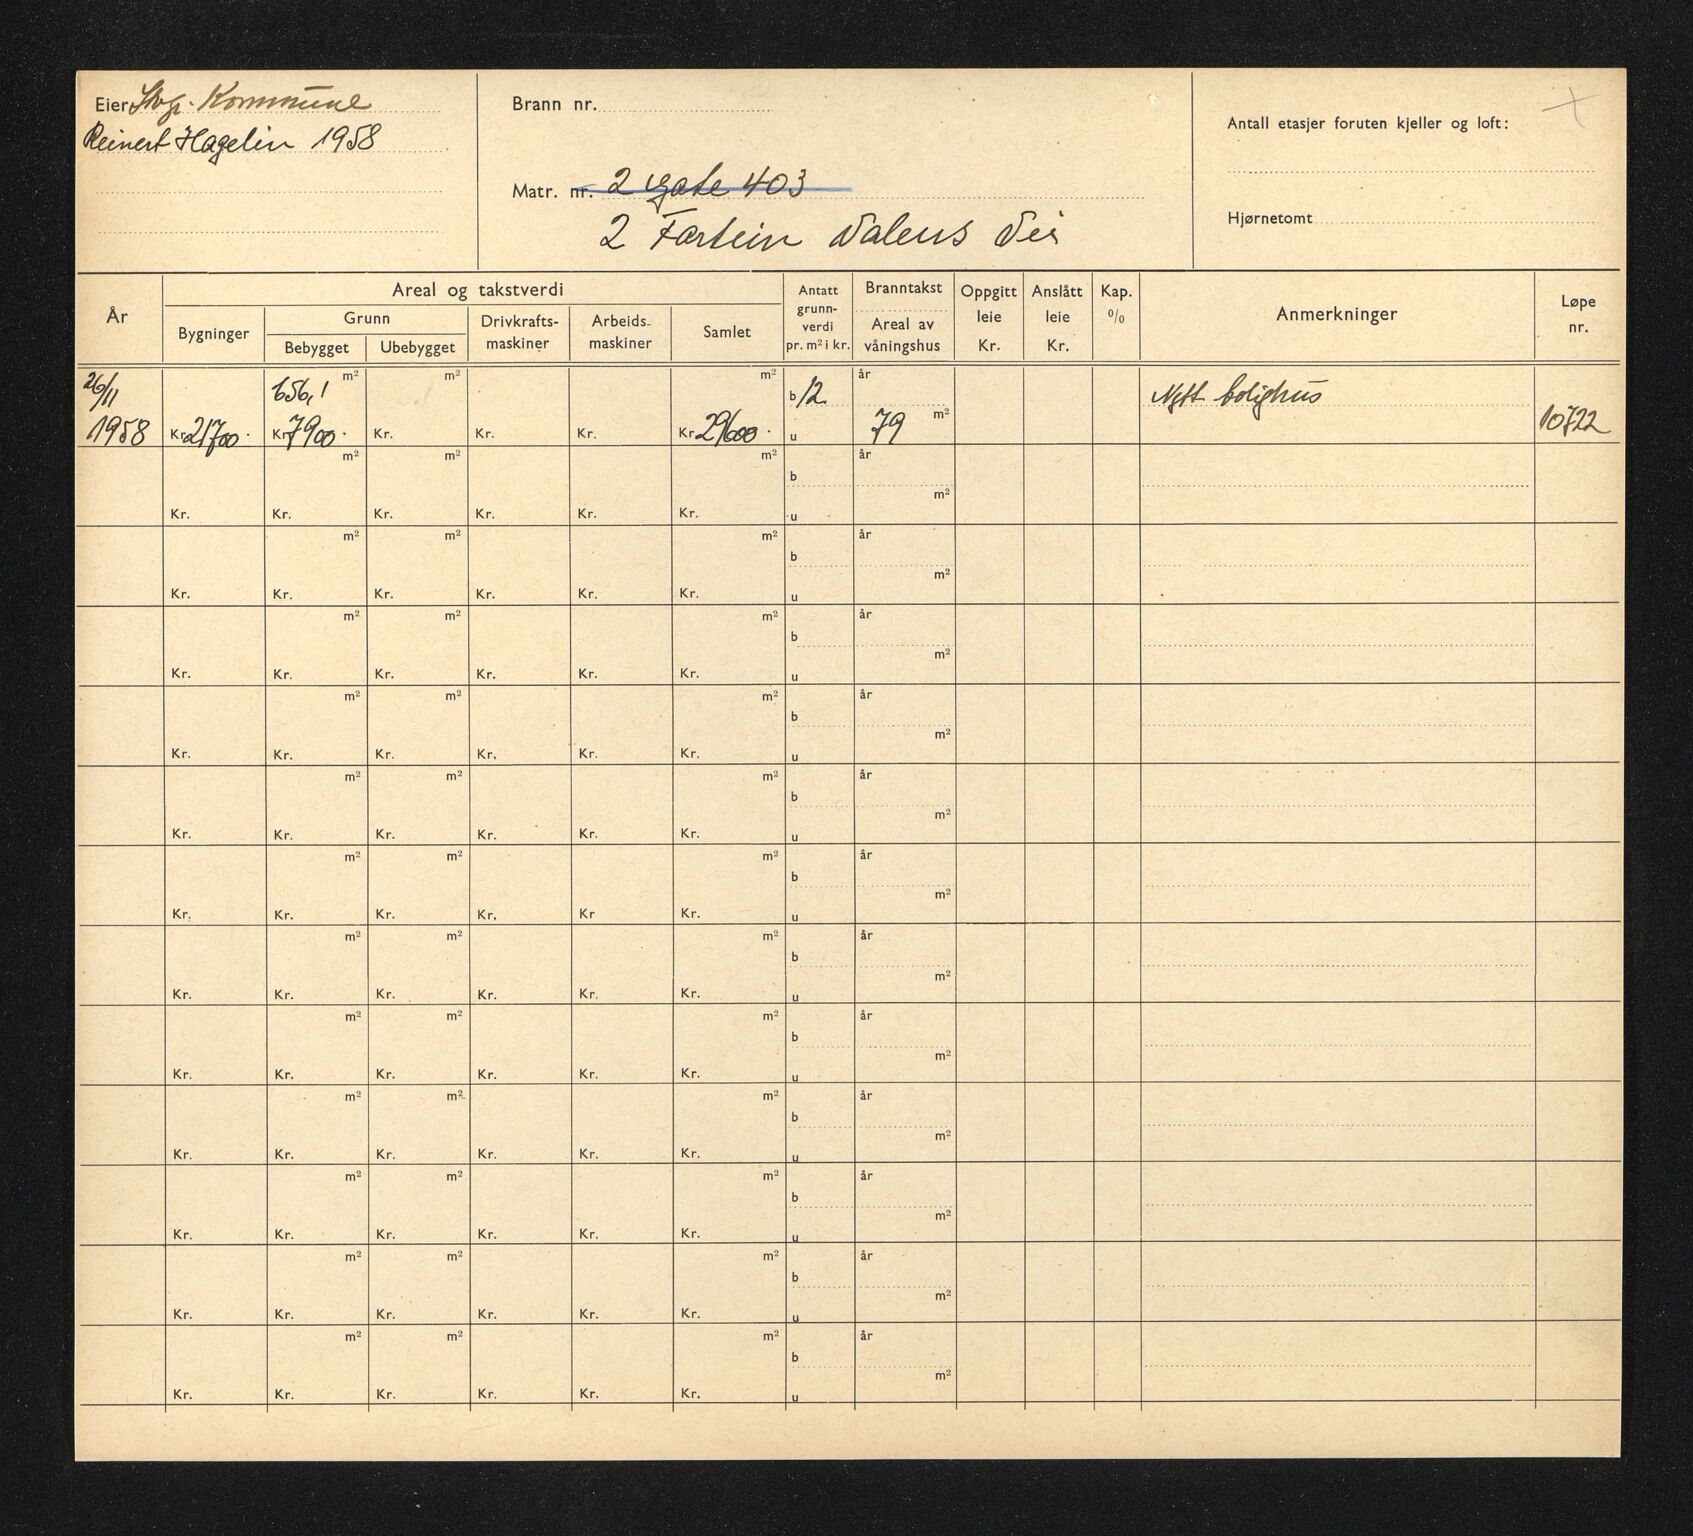 Eier Stvgr. Kommune
Reinert Hagelin 1958
Brann nr.
Matr. nr. 2 Gate 403
2 Fartein Valens Vei
Antall etasjer foruten kjeller og loft:
Hjørnetomt
År
Areal og takstverdi
Bygninger
Grunn
Bebygget Ubebygget
Drivkrafts-
maskiner
Arbeids-
maskiner
Samlet
Antatt
grunn-
verdi
pr. m² i kr.
Branntakst
Areal av
våningshus
Oppgitt
leie
Kr.
Anslått
leie
Kr.
Kap.
%
Anmerkninger
Løpe
nr.
26/11 656,1 m² m² m² b 12 år Nytt bolighus
1958 Kr. 21700. Kr. 7900. Kr. Kr. Kr. Kr. 29600. u 79 m² 10722
m² m² m² b år
Kr. Kr. Kr. Kr. Kr. Kr. u m²
m² m² m² b år
Kr. Kr. Kr. Kr. Kr. Kr. u m²
m² m² m² b år
Kr. Kr. Kr. Kr. Kr. Kr. u m²
m² m² m² b år
Kr. Kr. Kr. Kr. Kr. Kr. u m²
m² m² m² b år
Kr. Kr. Kr. Kr. Kr. Kr. u m²
m² m² m² b år
Kr. Kr. Kr. Kr. Kr Kr. u m²
m² m² m² b år
Kr. Kr. Kr. Kr. Kr. Kr. u m²
m² m² m² b år
Kr. Kr. Kr. Kr. Kr. Kr. u m²
m² m² m² b år
Kr. Kr. Kr. Kr. Kr. Kr. u m²
m² m² m² b år
Kr. Kr. Kr. Kr. Kr. Kr. u m²
m² m² m² b år
Kr. Kr. Kr. Kr. Kr. Kr. u m²
m² m² m² b år
Kr. Kr. Kr. Kr. Kr. Kr. u m²